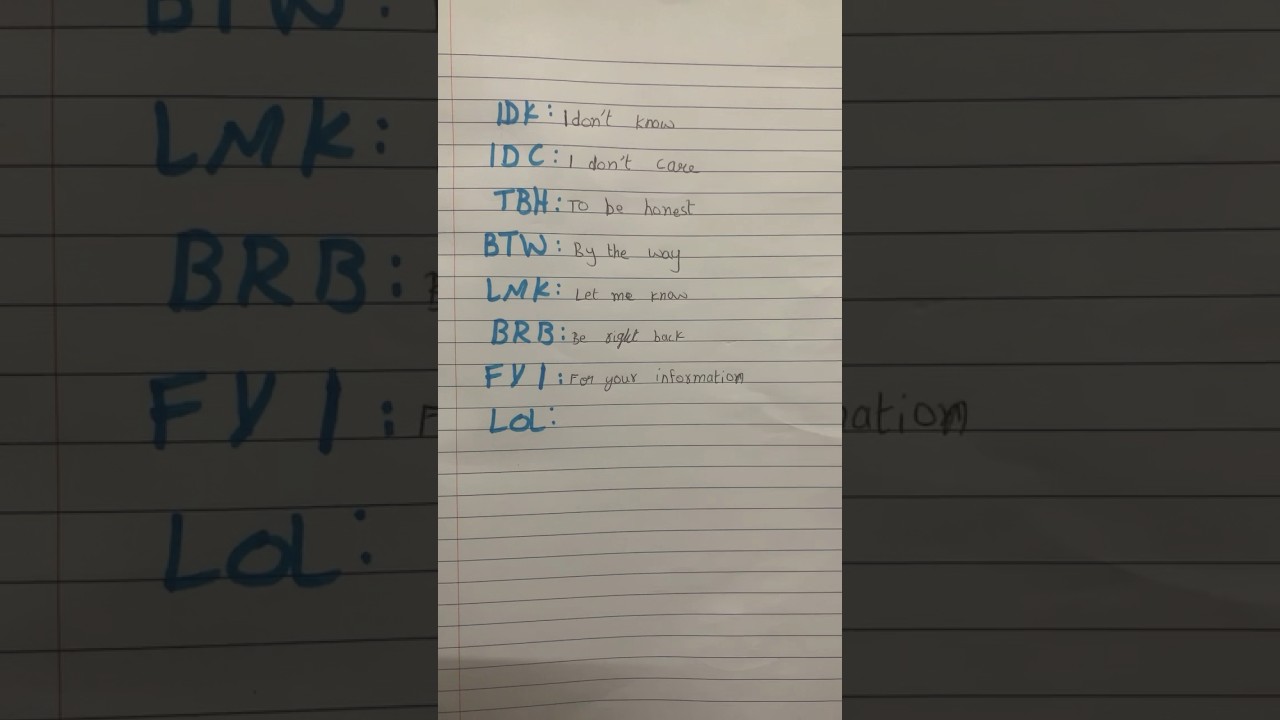 IDK: I don't know
IDC: I don't care
TBH: To be honest
BTW: By the way
LMK: Let me know
BRB: Be right back
FYI: For your information
LOL: